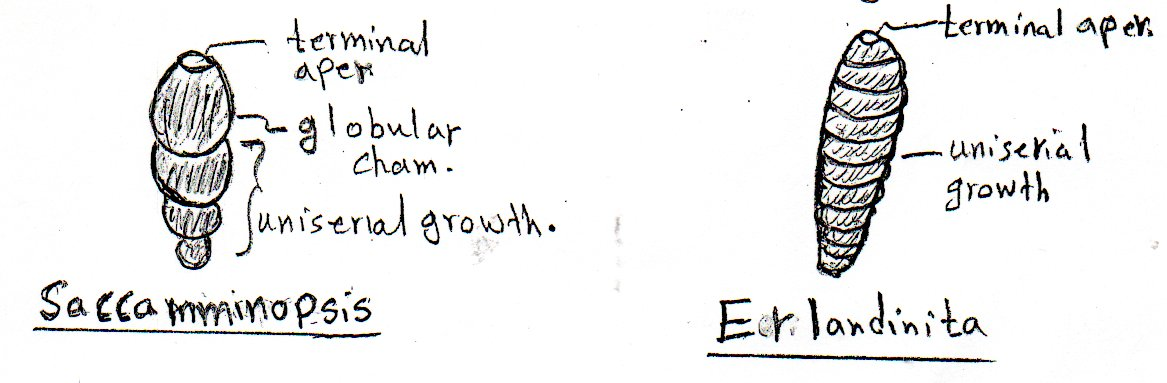 terminal
aper.
globular
cham.
uniserial growth.
Saccamminopsis
terminal aper.
uniserial
growth
Erlandinita